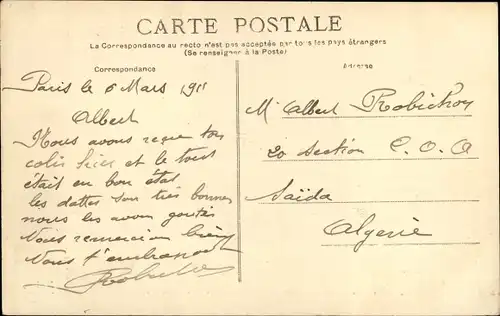 CARTE POSTALE
La Correspondance au recto n'est pas acceptée par tous les pays étrangers
(Se renseigner à la Poste)
Correspondance
Adresse
Paris le 6 Mars 1911
Albert
Nous avons reçue ton
colis hier et le tout
était en bon état
les dattes son très bonnes
nous les avon goutés
Nous remercion bien
Nous t'embrasson
M. Albert Robichon
20 section C. O. A
Saïda
Algerie